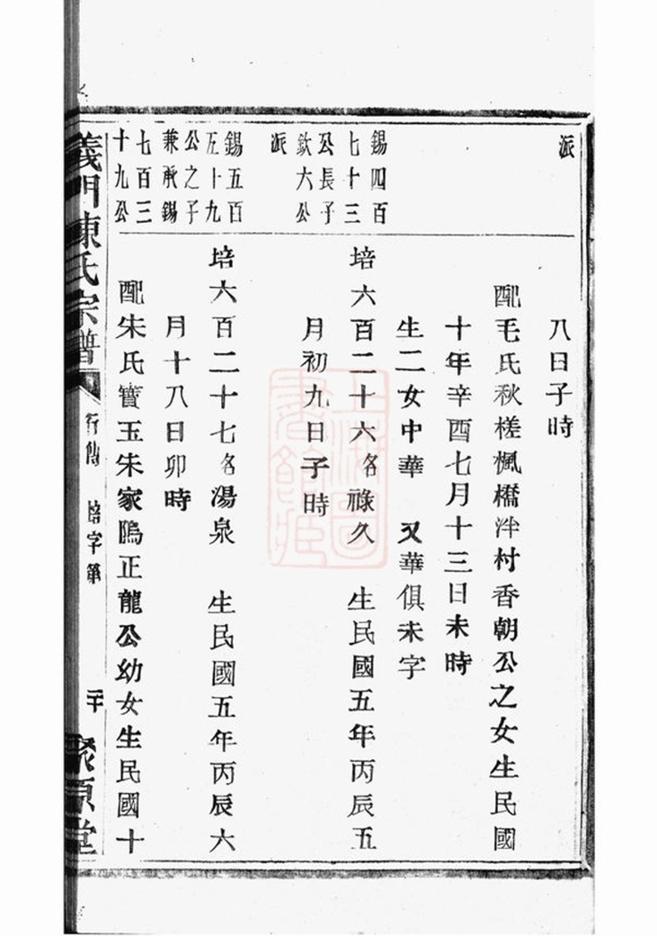 派
八日子時
配毛氏秋槎楓橋泮村香朝公之女生民國
十年辛酉七月十三日未時
生二女中華 又華俱未字
錫四百
七十三
公長子
欽六公
派
培六百二十六名祿久 生民國五年丙辰五
月初九日子時
錫五百
五十九
公之子
兼承錫
七百三
十九公
培六百二十七名湯泉 生民國五年丙辰六
月十八日卯時
配朱氏寶玉朱家鴎正龍公幼女生民國十
義門陳氏宗譜
行傳 培字第
二十
聚原堂
上海圖書館藏